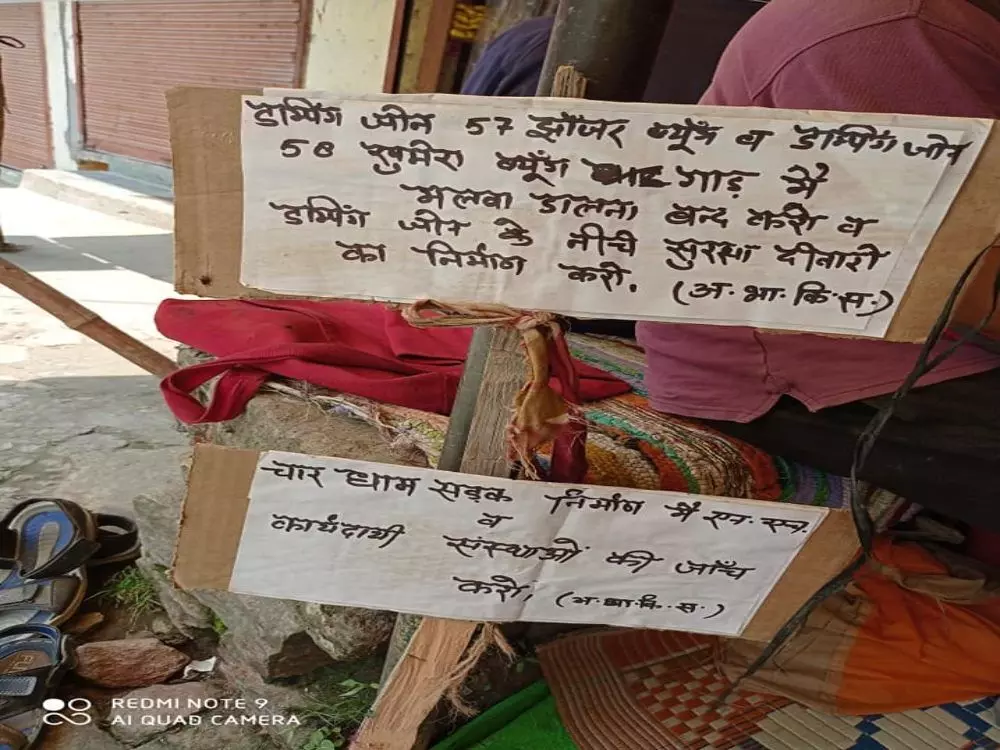 डम्पिंग जोन 57 झॉजर ब्यूँग व डम्पिंग जोन
58 खुमेरा ब्यूँग गाड़ मै
मलवा डालना बन्द करो व
डम्पिंग जोन के नीचे सुरक्षा दीवारो
का निर्माण करो. (अ.भा.कि.स.)
चार धाम सड़क निर्माण मै एन. एच.
व
कार्यदायी संस्थाओं की जाँच
करो. (अ.भा.कि.स.)
REDMI NOTE 9
AI QUAD CAMERA